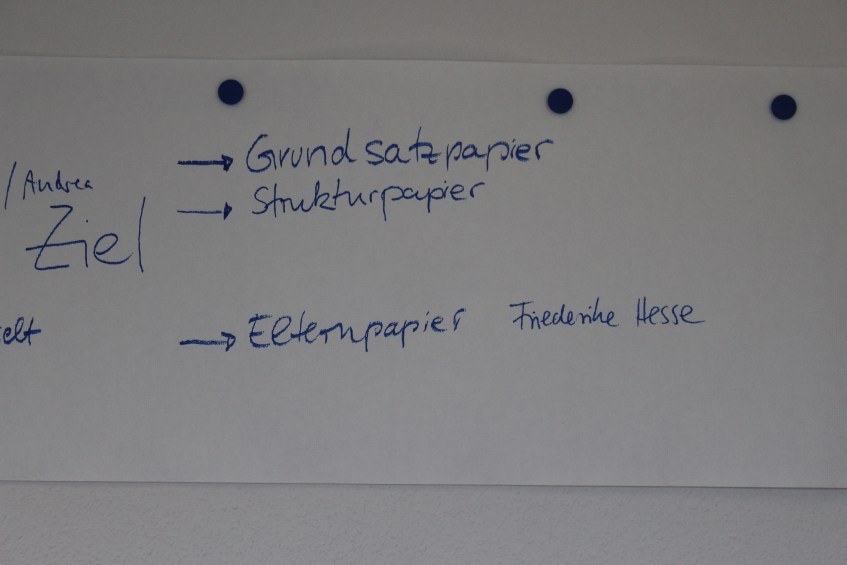 → Grundsatzpapier
/ Andrea
→ Strukturpapier
Ziel
→ Elternpapier Friederike Hesse
elt